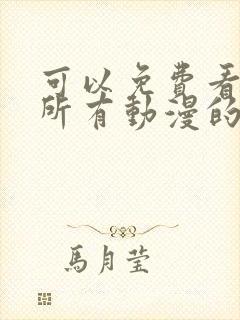 可以免费看
所有動漫的
馬月莹